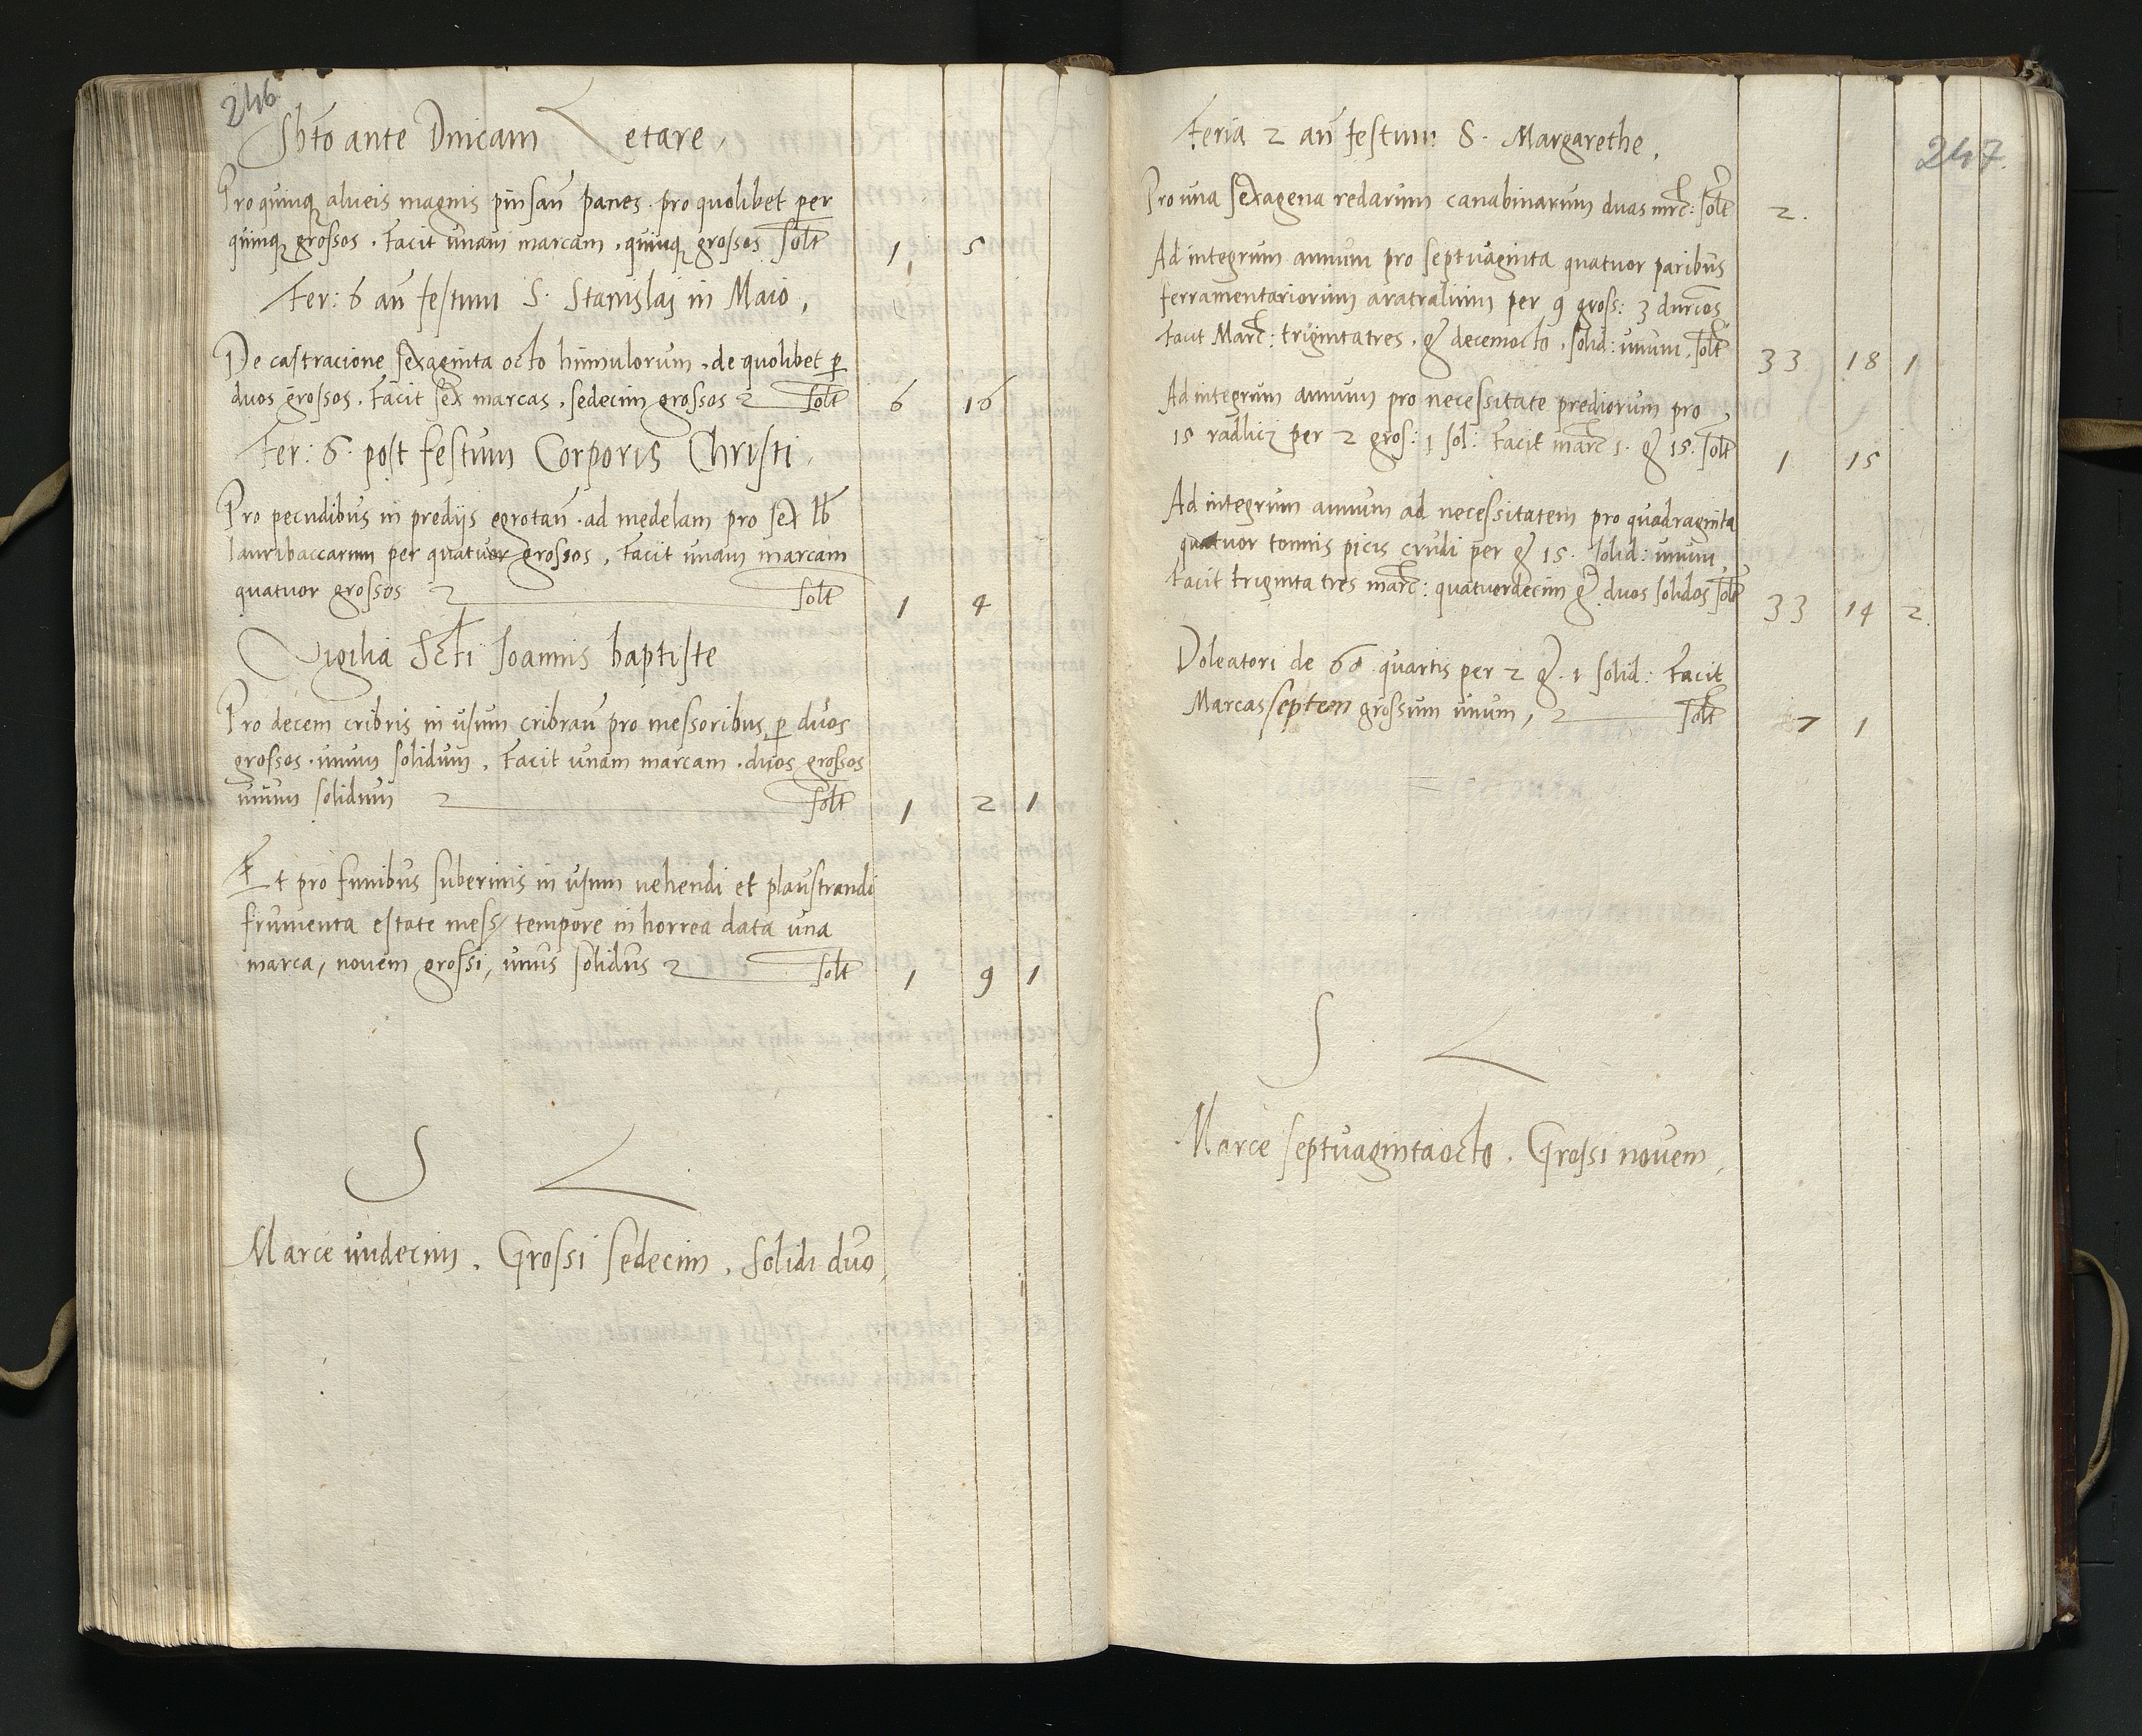 246
Sbto ante Dnicam Letare
Pro quinq alveis magnis pinsan panes . pro quolibet per
quinq grossos . Facit unam marcam . quinq grossos solt 1 5
Fer: 6 an festum S. Stanislaj in Maio ,
De castracione sexaginta octo hinnulorum . de quolibet p
duos grossos . Facit sex marcas . sedecim grossos solt 6 16
Fer: 6. post festum Corporis Christi .
Pro pecudibus in predijs egrotan . ad medelam pro sex lb
lauribaccarum per quatuor grossos , Facit unam marcam
quatuor grossos solt 1 4
Vigilia Scti Joannis baptiste
Pro decem cribris in usum cribran pro messoribus, p duos
grossos . unum solidum . Facit unam marcam . duos grossos
unum solidum solt 1 2 1
Et pro funibus suberinis in usum vehendi et plaustrandi
frumenta estate mess tempore in horrea data una
marca, novem grossi, unus solidus solt 1 9 1
S L
Marce undecim . Grossi sedecim . solidi duo
247.
Feria 2 an festum S. Margarethe .
Pro una sexagena redarum canabinarum duas mrc: solt 2.
Ad integrum annum pro septuaginta quatuor paribus
ferramentariorum aratralium per 9 gross: 3 durcos
Facit Marc: triginta tres . g decemocto . solid: unum . solt 33 18 1
Ad integrum annum pro necessitate prediorum pro
15 radlicz per 2 gros: 1 sol: Facit marc 1. g 15. solt 1 15
Ad integrum annum ad necessitatem pro quadraginta
quatuor tonnis picis crudi per g 15. solid: unum
Facit triginta tres marc: quatuordecim g duos solidos solt 33 14 2.
Doleatori de 60 quartis per 2 g. 1 solid: Facit
Marcas septem grossum unum , solt 7 1
S L
Marce septuagintaocto . Grossi novem ,